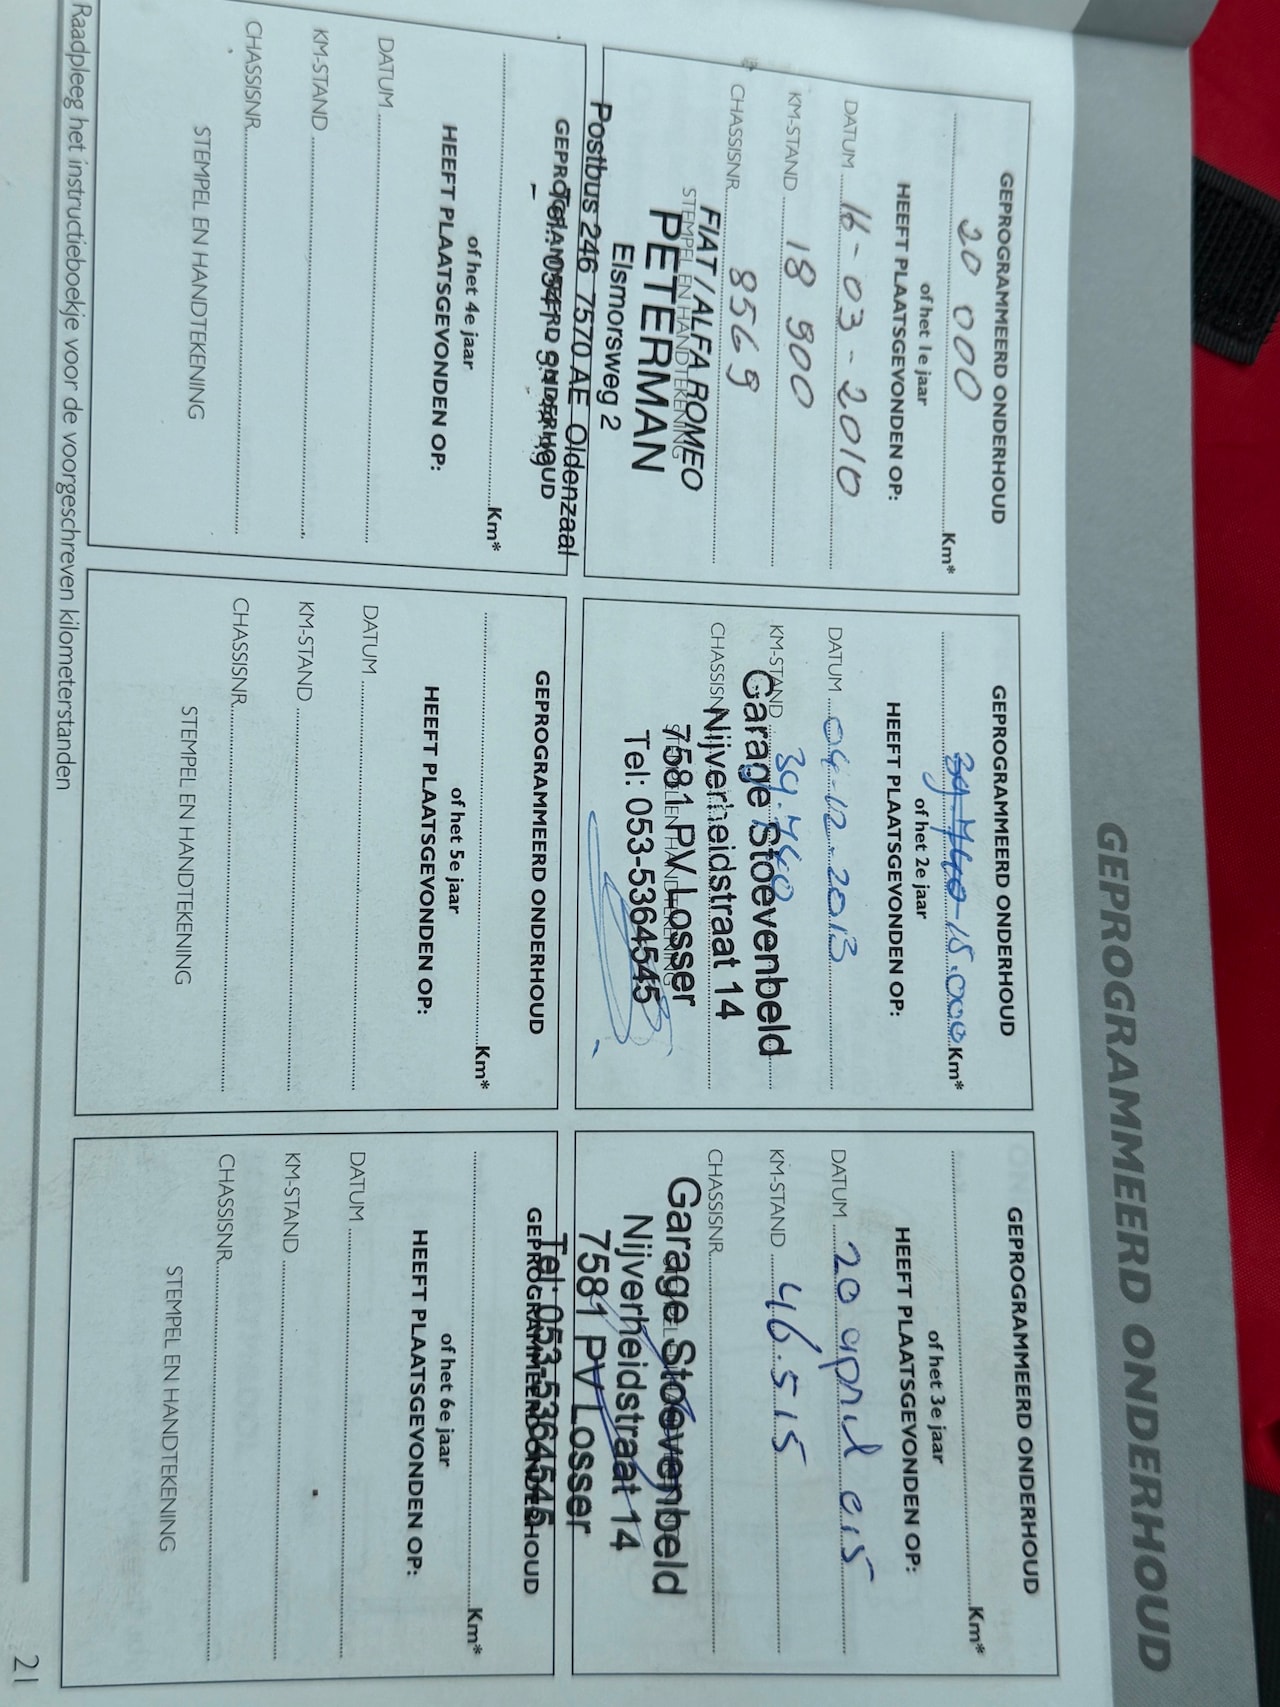 GEPROGRAMMEERD ONDERHOUD
GEPROGRAMMEERD ONDERHOUD
20 000 Km*
of het 1e jaar
HEEFT PLAATSGEVONDEN OP:
DATUM 16-03-2010
KM-STAND 18 900
CHASSISNR. 8569
STEMPEL EN HANDTEKENING
FIAT / ALFA ROMEO
PETERMAN
Elsmorsweg 2
Postbus 246 7570 AE Oldenzaal
GEPROGRAMMEERD ONDERHOUD
39.740 15.000 Km*
of het 2e jaar
HEEFT PLAATSGEVONDEN OP:
DATUM 04-12-2013
KM-STAND 39.740
CHASSISNR.
STEMPEL EN HANDTEKENING
Garage Stoevenbeld
Nijverheidstraat 14
7581 PV Losser
Tel: 053-5364545
GEPROGRAMMEERD ONDERHOUD
Km*
of het 3e jaar
HEEFT PLAATSGEVONDEN OP:
DATUM 20 april
KM-STAND 46.515
CHASSISNR.
Garage Stoevenbeld
Nijverheidstraat 14
7581 PV Losser
Tel: 053-5364545
GEPROGRAMMEERD ONDERHOUD
Km*
of het 4e jaar
HEEFT PLAATSGEVONDEN OP:
DATUM
KM-STAND
CHASSISNR.
STEMPEL EN HANDTEKENING
GEPROGRAMMEERD ONDERHOUD
Km*
of het 5e jaar
HEEFT PLAATSGEVONDEN OP:
DATUM
KM-STAND
CHASSISNR.
STEMPEL EN HANDTEKENING
GEPROGRAMMEERD ONDERHOUD
Km*
of het 6e jaar
HEEFT PLAATSGEVONDEN OP:
DATUM
KM-STAND
CHASSISNR.
STEMPEL EN HANDTEKENING
Raadpleeg het instructieboekje voor de voorgeschreven kilometerstanden
21